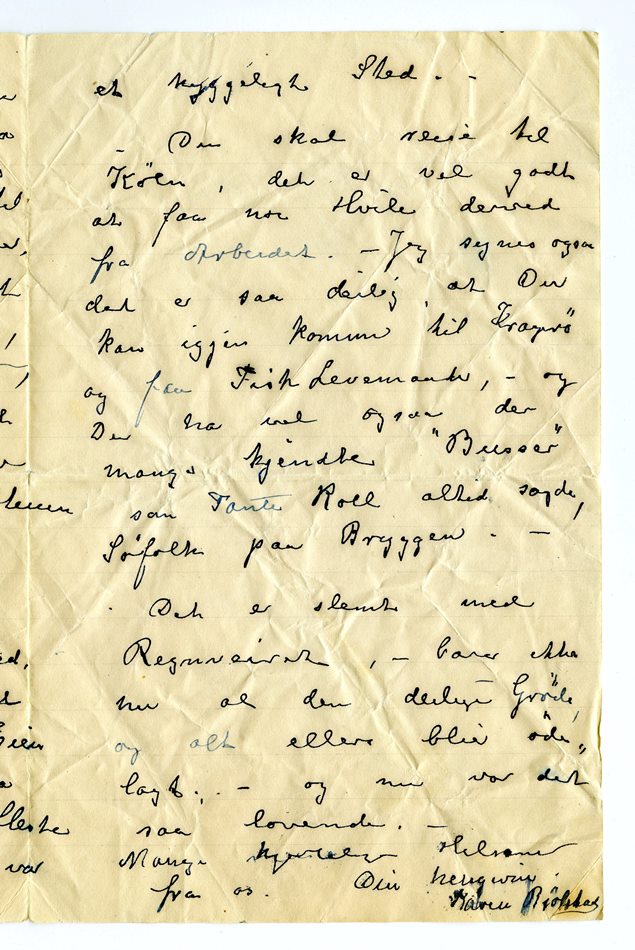 et hyggeligt Sted. -
- Du skal reise til
Köln, det er vel godt
at faa noe Hvile derved
fra Arbeidet. - Jeg synes ogsaa
det er saa deilig, at Du
kan igjen komme til Kragerö
og faa Fisk Levemaade, - og
Du har vel ogsaa der
mange kjendte "Busser"
som Tante Roll altid sagde,
Söfolk paa Bryggen. -
Det er slemt med
Regnveiret, - barer ikke
nu al den deilige Gröde,
og alt ellers blir öde„
lagt. - og nu var det
saa lovende. -
Mange hjertelige Hilsener
fra os. Din hengivne
Karen Bjölstad